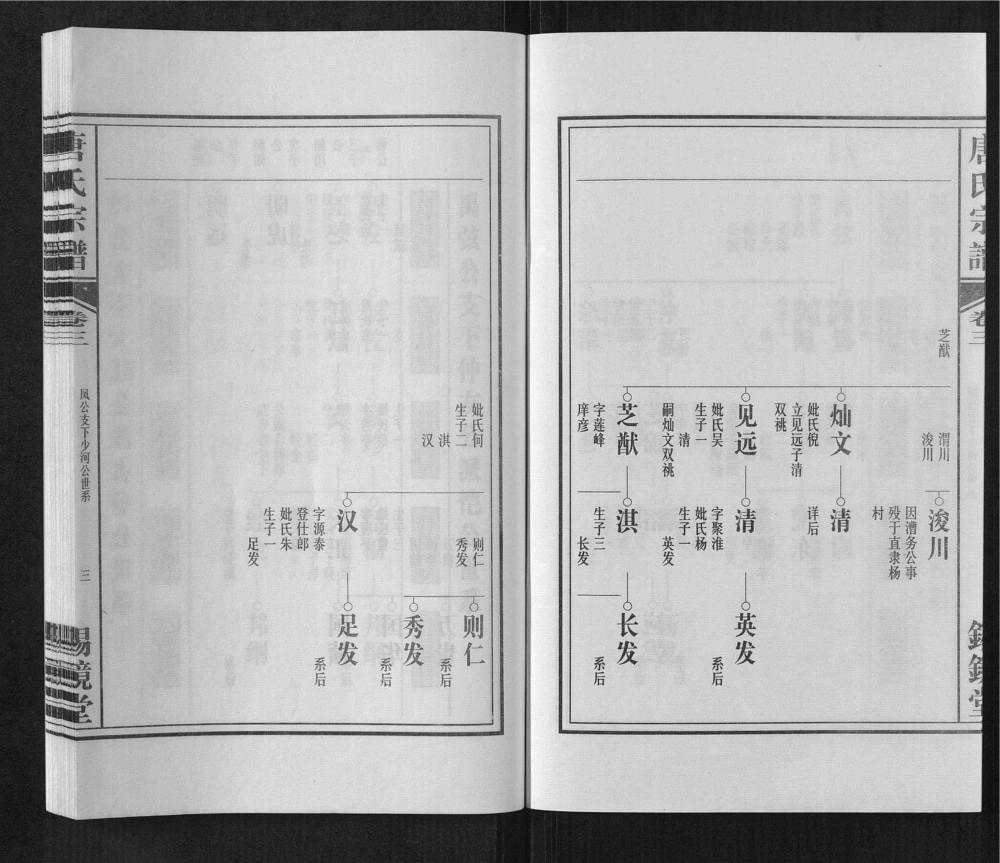 唐氏宗谱
卷三
芝猷
渭川
浚川
浚川
因漕务公事
殁于直隶杨
村
灿文
妣氏倪
立见远子清
双祧
清
详后
见远
妣氏吴
生子一
清
嗣灿文双祧
清
字聚淮
妣氏杨
生子一
英发
英发
系后
芝猷
字莲峰
庠彦
淇
生子三
长发
长发
系后
妣氏何
生子二
淇
汉
则仁
秀发
则仁
系后
秀发
系后
汉
字源泰
登仕郎
妣氏朱
生子一
足发
足发
系后
唐氏宗谱
卷三
凤公支下少河公世系
三
锡镜堂